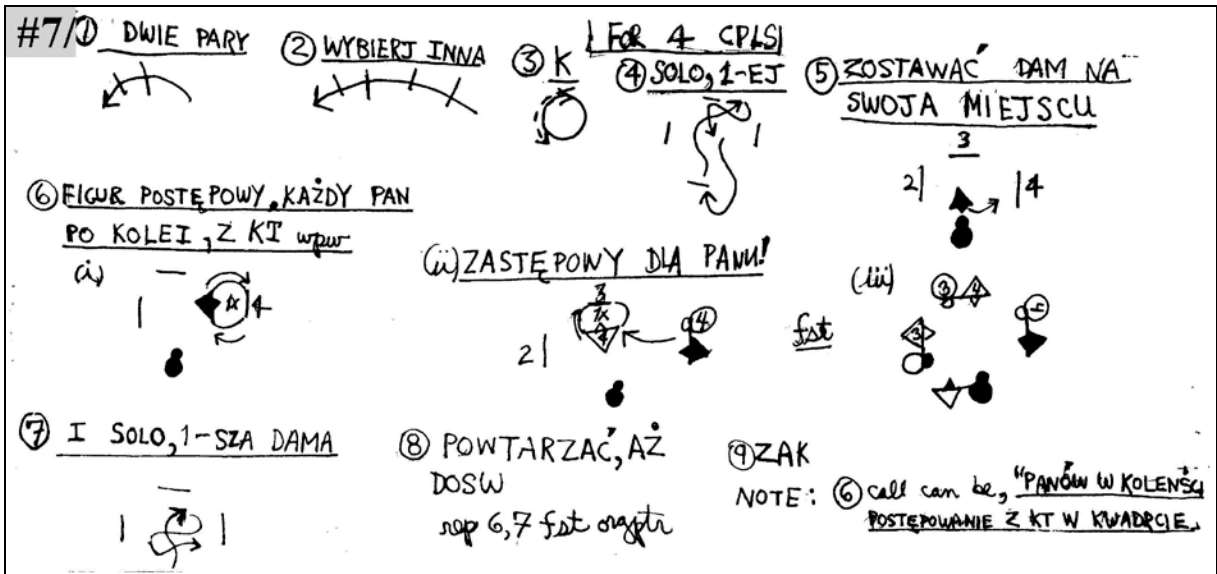 #7/① DWIE PARY
② WYBIERJ INNA
③ K
FOR 4 CPLS
④ SOLO, 1-EJ
1 1
⑤ ZOSTAWAĆ DAM NA
SWOJA MIEJSCU
3
2 4
⑥ FIGUR POSTĘPOWY, KAŻDY PAN
PO KOLEI, Z KT wpw
(i)
1 1x 4
(ii) ZASTĘPOWY DLA PANU!
3
1x
4 4
2
(iii)
fst
3 4
3
⑦ I SOLO, 1-SZA DAMA
1 1
⑧ POWTARZAĆ, AŻ
DOSW
rep 6,7 fst orgptr
⑨ ZAK
NOTE: ⑥ call can be, "PANÓW W KOLENŚĆI
POSTĘPOWANIE Z KT W KWADRCIE.